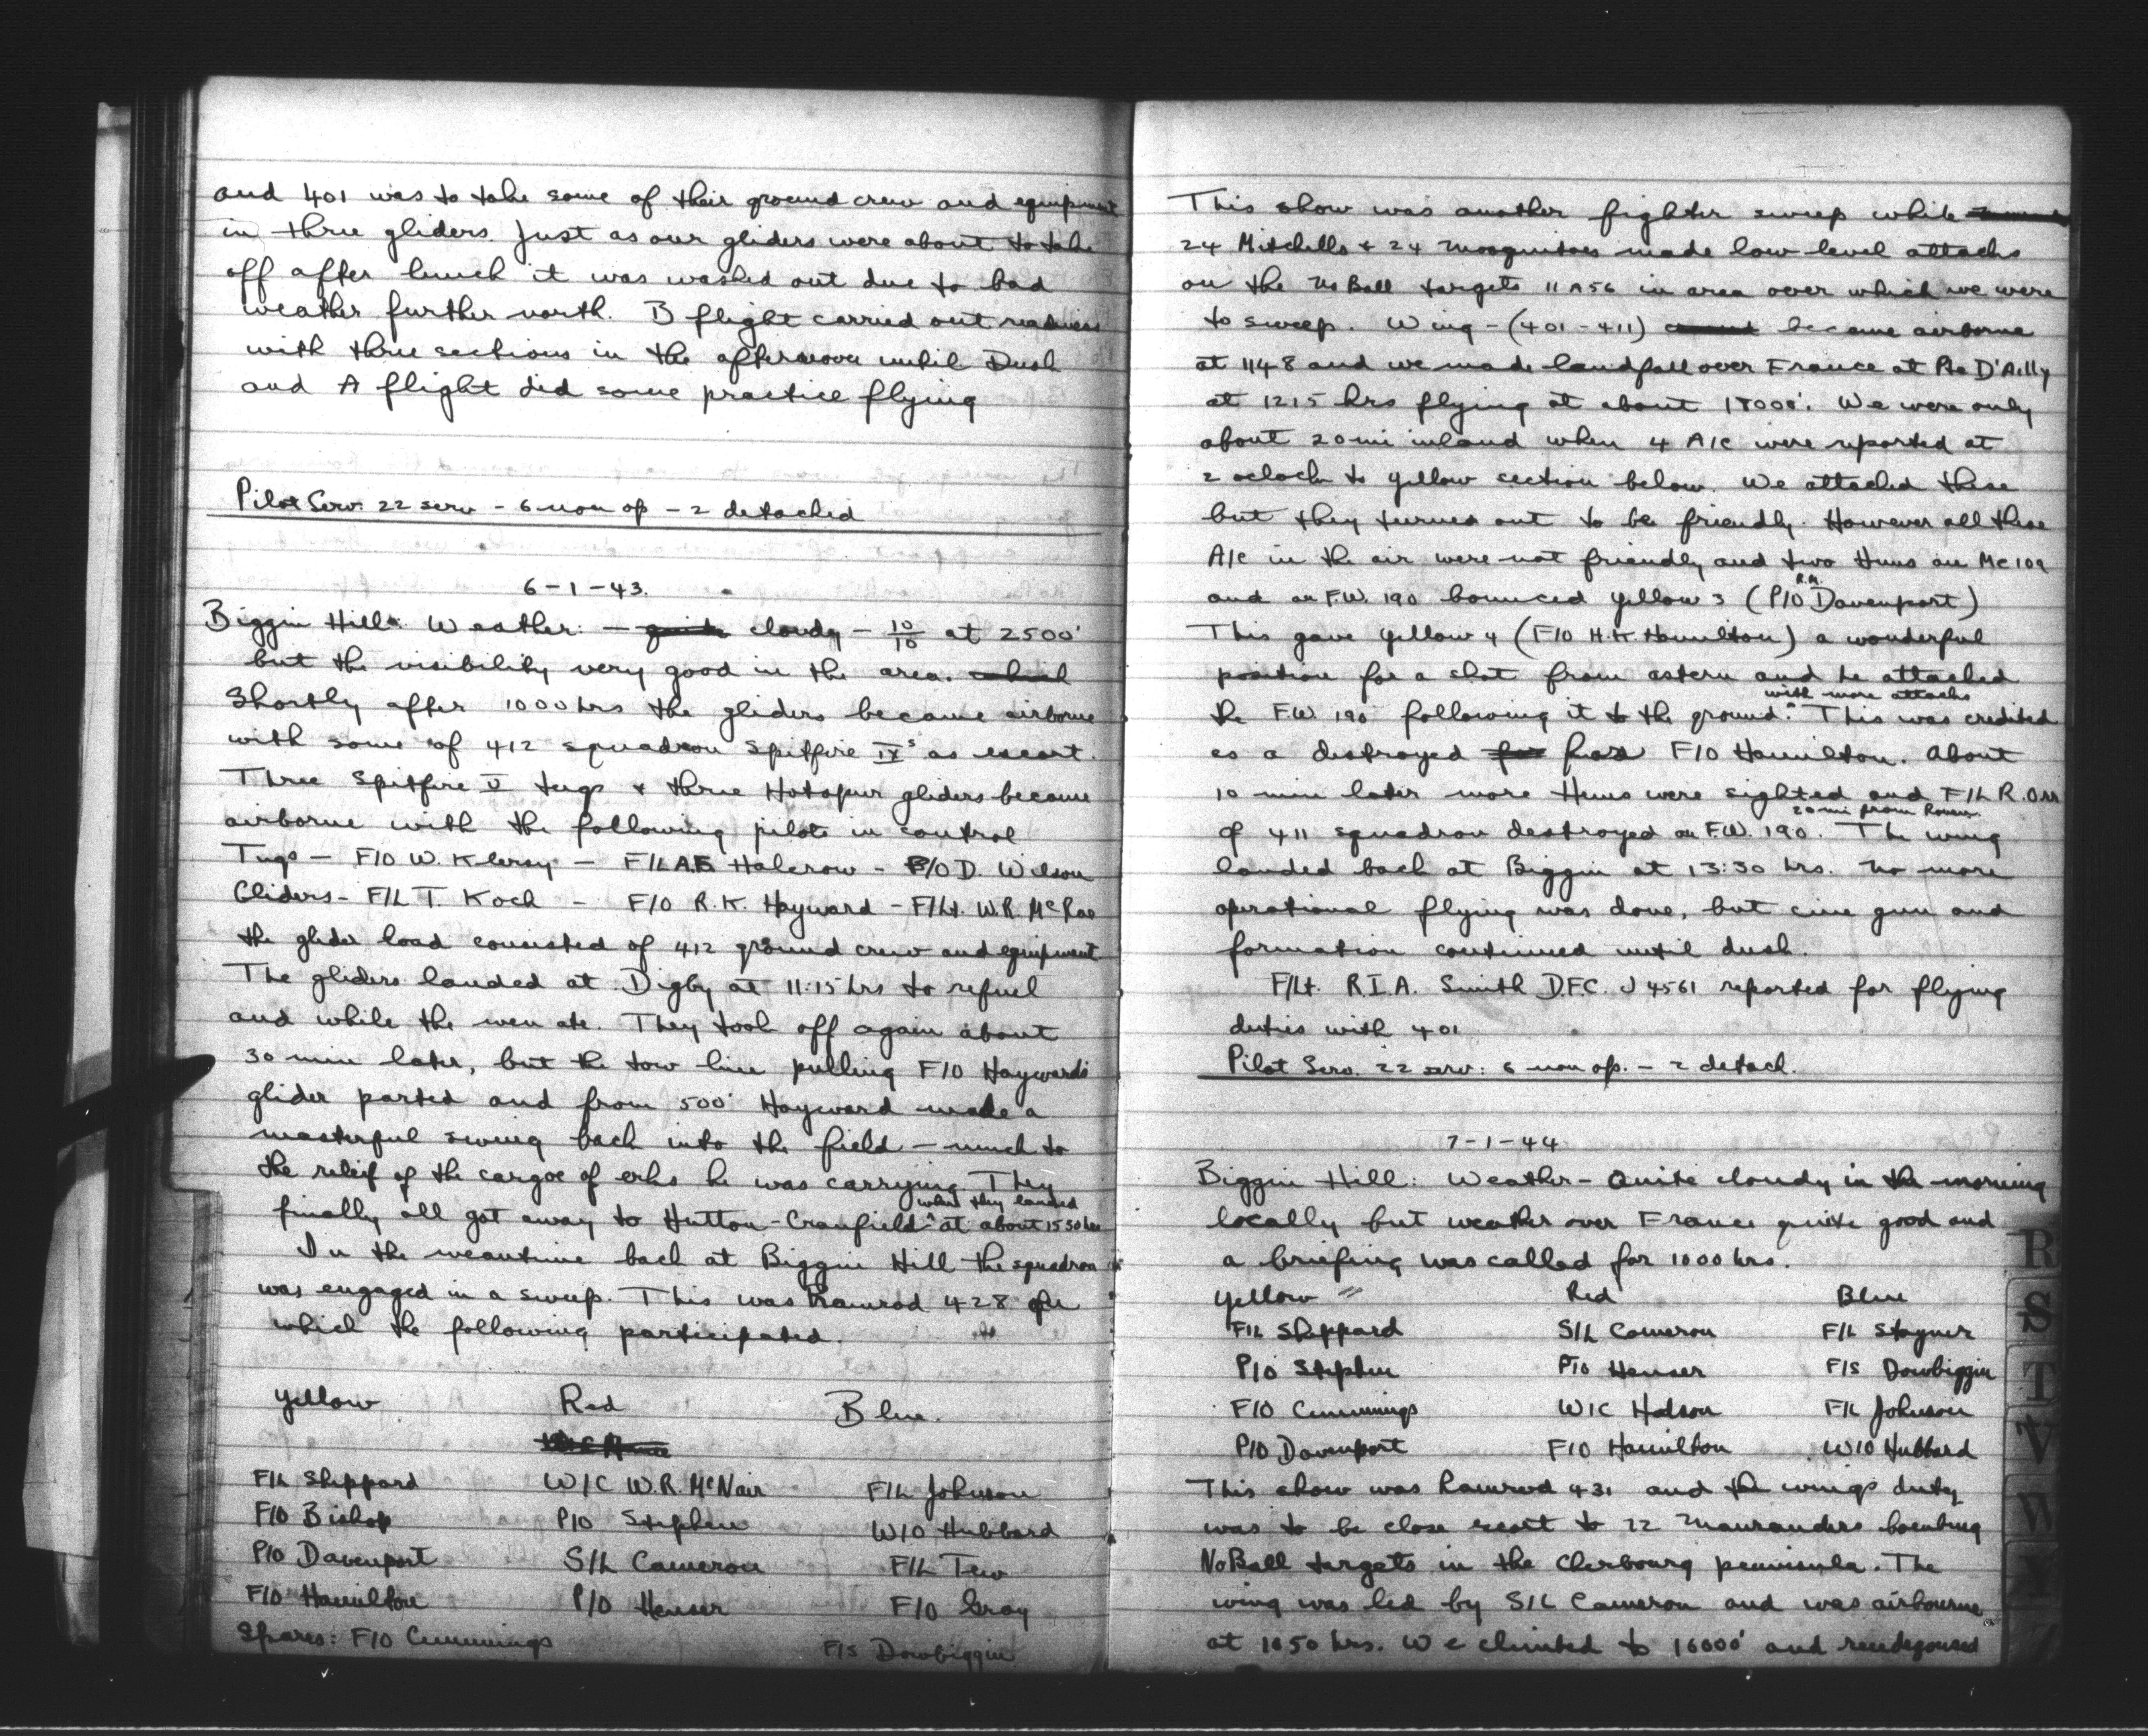 and 401 was to take some of their ground crew and equipment
in three gliders. Just as our gliders were about to take
off after lunch it was washed out due to bad
weather further north. B flight carried out readiness
with three sections in the afternoon until Dusk
and A flight did some practice flying
Pilot Serv. 22 serv - 6 non op - 2 detached
6-1-43.
Biggin Hill: Weather: - quite cloudy - 10/10 at 2500'
but the visibility very good in the area. which
Shortly after 1000 hrs the gliders became airborne
with some of 412 squadron Spitfire IXs as escort.
Three Spitfire V tugs & three Hotspur gliders became
airborne with the following pilots in control
Tugs - F/O W. Klersy - F/L A.F. Halcrow - F/O D. Wilson
Gliders - F/L T. Koch - F/O R.K. Hayward - F/Lt. W.R. McRae
the glider load consisted of 412 ground crew and equipment
The gliders landed at Digby at 11:15 hrs to refuel
and while the men ate. They took off again about
30 min later, but the tow line pulling F/O Haywards
glider parted and from 500' Hayward made a
masterful swing back into the field - much to
the releif of the cargoe of erks he was carrying. They
finally all got away to Hutton-Cranfield ^ at about 1530 hrs
where they landed
In the meantime back at Biggin Hill the squadron
was engaged in a sweep. This was Ramrod 428
which the following participated.
Yellow Red Blue.
F/L Sheppard W/C W.R. McNair F/L Johnson
F/O Bishop P/O Stephen W/O Hubbard
P/O Davenport S/L Cameron F/L Tew
F/O Hamilton P/O Heuser F/O Gray
Spares: F/O Cummings F/S Dowbiggin
This show was another fighter sweep while
24 Mitchells & 24 Mosquitoes made low level attacks
on the No Ball targets 11A56 in area over which we were
to sweep. Wing - (401-411) became airborne
at 1148 and we made landfall over France at Pte D'Ailly
at 1215 hrs flying at about 18000'. We were only
about 20 mi inland when 4 A/c were reported at
2 oclock to yellow section below. We attacked these
but they turned out to be friendly. However all these
A/c in the air were not friendly and two Huns an Me 109
and an F.W. 190 bounced yellow 3 (P/O R.M. Davenport)
This gave yellow 4 (F/O H.K. Hamilton) a wonderful
position for a shot from astern and he attacked
the F.W. 190 following it to the ground ^ with more attacks. This was credited
as a destroyed for F/O Hamilton. About
10 min later more Huns were sighted and F/L R. Orr
of 411 squadron destroyed an F.W. 190 20 mi from Rouen. The wing
landed back at Biggin at 13:30 hrs. No more
operational flying was done, but cine gun and
formation continued until dusk.
F/Lt. R.I.A. Smith D.F.C. J4561 reported for flying
duties with 401
Pilot Serv. 22 serv: 6 non op. - 2 detach.
7-1-44
Biggin Hill: Weather - Quite cloudy in the morning
locally but weather over France quite good and
a briefing was called for 1000 hrs.
Yellow Red Blue
F/L Sheppard S/L Cameron F/L Stayner
P/O Stephen P/O Heuser F/S Dowbiggin
F/O Cummings W/C Hodson F/L Johnson
P/O Davenport F/O Hamilton W/O Hubbard
This show was Ramrod 431 and the wings duty
was to be close escort to 72 Maurauders bombing
NoBall targets in the Cherbourg peninsula. The
wing was led by S/L Cameron and was airbourne
at 1050 hrs. We climbed to 16000' and
R
S
T
V
W
Y
Z